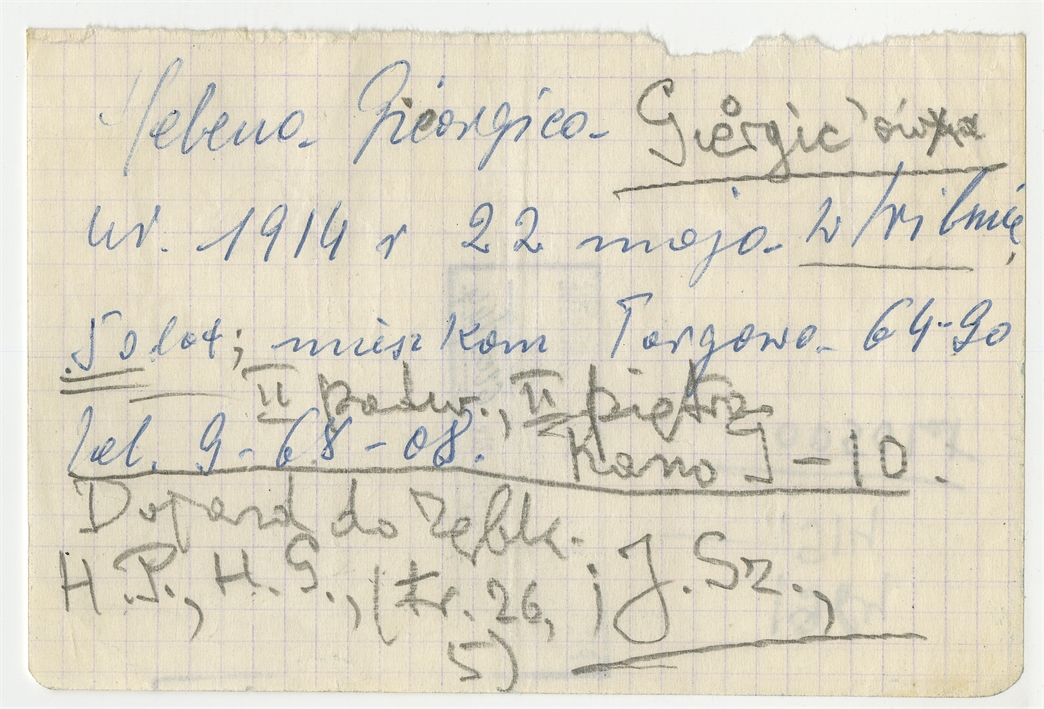 Helena Gieorgica Giergic'ówna
ur. 1914 r 22 maja w Wilnie,
50 lat; mieszkam Targowa 64-90
II podw., II piętr.
tel. 9-68-08. Rano J-10.
Dojazd do Ząbk.
H.P., H.G., (tr. 26, ; J. Sz.,
5)